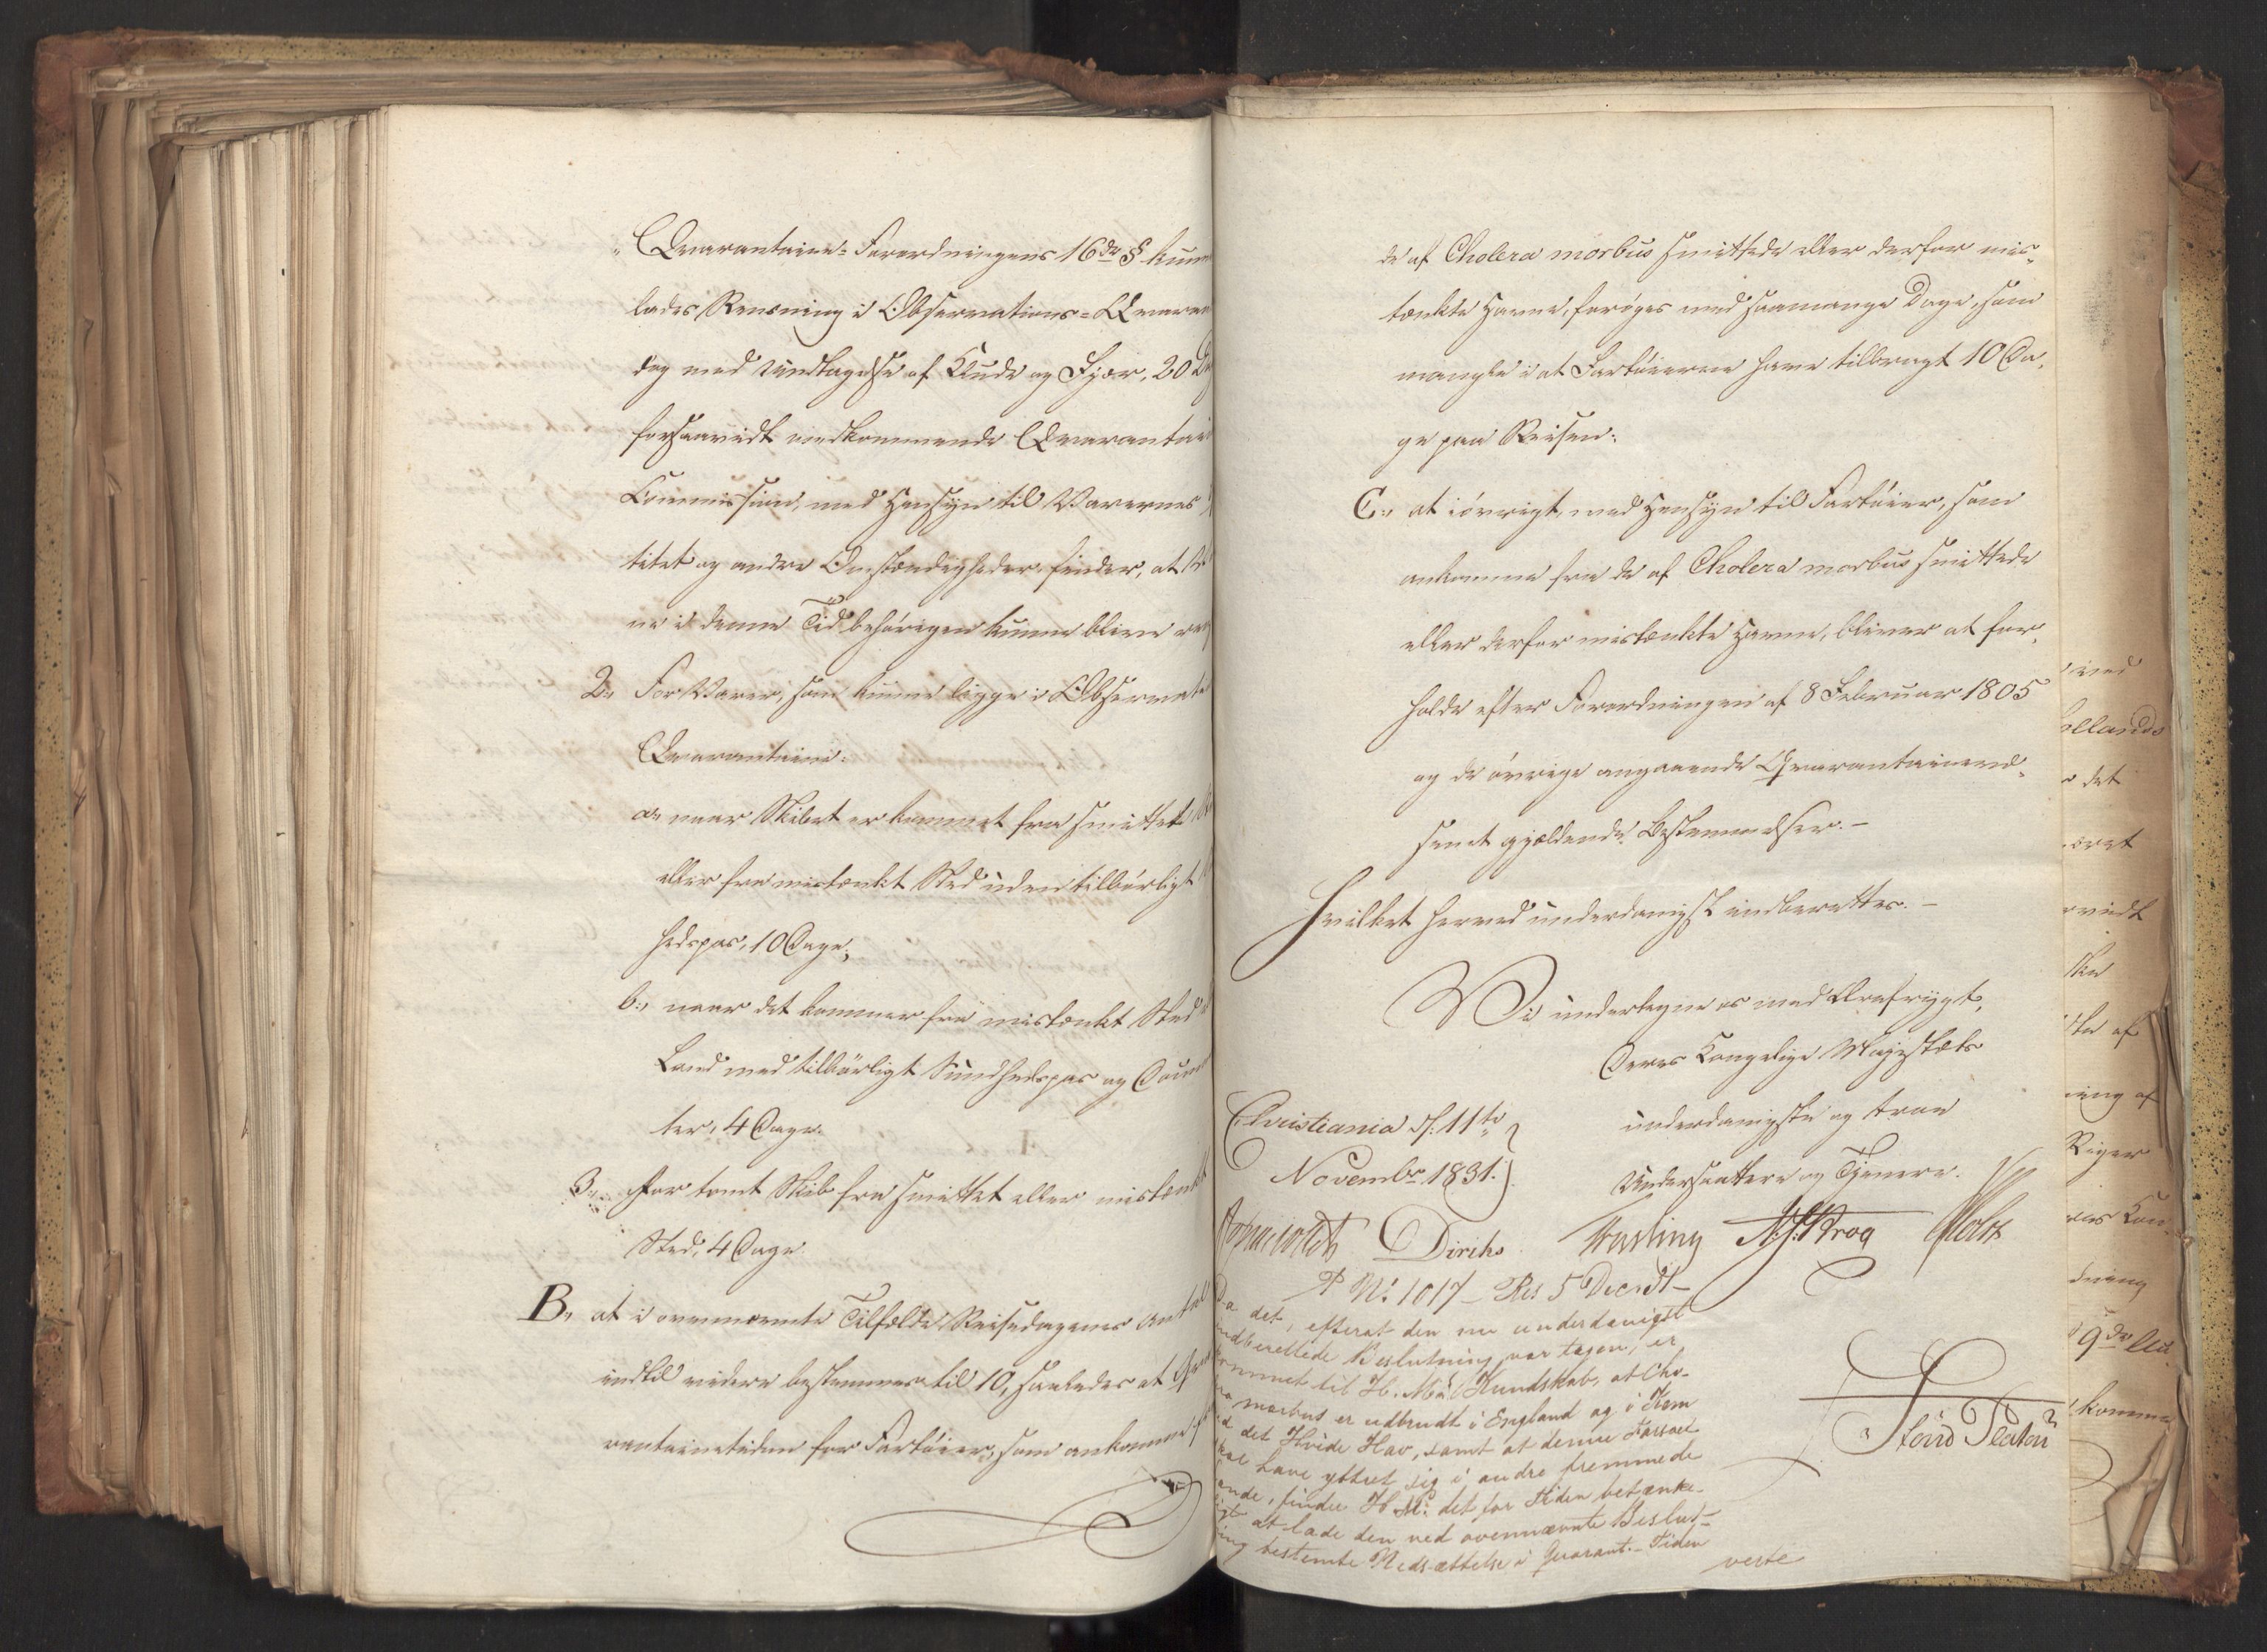 „Qvarantaine-Forordningens 16de § kun
lades Rensning i Observations-Qvaran
dog med Undtagelse af Klude og Fjær, 20 Da
forsaavidt vedkommende Qvarantai
Commission, med Hensyn til Varernes
titet og andre Omstændigheder finder, at
ne i denne Tid behørigen kunne blive
2„ For Varer, som kunne ligge i Observati
Qvarantaine:
a„ naar Skibet er kommet fra smittet
eller fra mistænkt Sted uden tilbørligt
hedspas, 10 Dage;
b„ naar det kommer fra mistænkt Sted
Land med tilbørligt Sundhedspas og Docum
ter, 4 Dage.
3„ For tomt Skib fra smittet eller mistænkt
Sted, 4 Dage.
B„ at i ovennævnte Tilfælde Reisedagenes Antal
indtil videre bestemmes til 10, saaledes at Qva
rantainetiden for Fartøier, som ankomme fra
de af Cholera morbus smittede eller derfor mis-
tænkte Havne, forøges med saamange Dage, som
mangle i at Fartøierne have tilbragt 10 Da-
ge paa Reisen:
C„ at iøvrigt, med Hensyn til Fartøier, som
ankomme fra de af Cholera morbus smittede
eller derfor mistænkte Havne, bliver at for-
holde efter Forordningen af 8 Februar 1805
og de øvrige angaaende Qvarantainevæ-
senet gjældende Bestemmelser.–
Hvilket herved underdanigst indberettes.–
Vi undertegne os med Ærefrygt,
Deres Kongelige Majestæts
underdanigste og troe
Undersaattere og Tjenere.
Christiania d. 11te
Novembr 1831.
Diriks Fasting Krog Holst
No 1017 – Res 5 Decr dt –
Da det, efterat den nu underdanigst
indberettede Beslutning var tagen, er
kommet til H. Mai Kundskab, at Cho-
ra morbus er udbrudt i England og i Kem
ved det Hvide Hav, samt at denne Farsoet
skal have yttret sig i andre fremmede
Lande, finder H M: det for Tiden betænke-
ligt at lade den ved ovennævnte Beslut-
ning bestemte Nedsættelse i Qvarant.-Tiden
verte
ved
ollands
det
været
vidt
af
ning af
Riger
Kon
dning
9de
komme